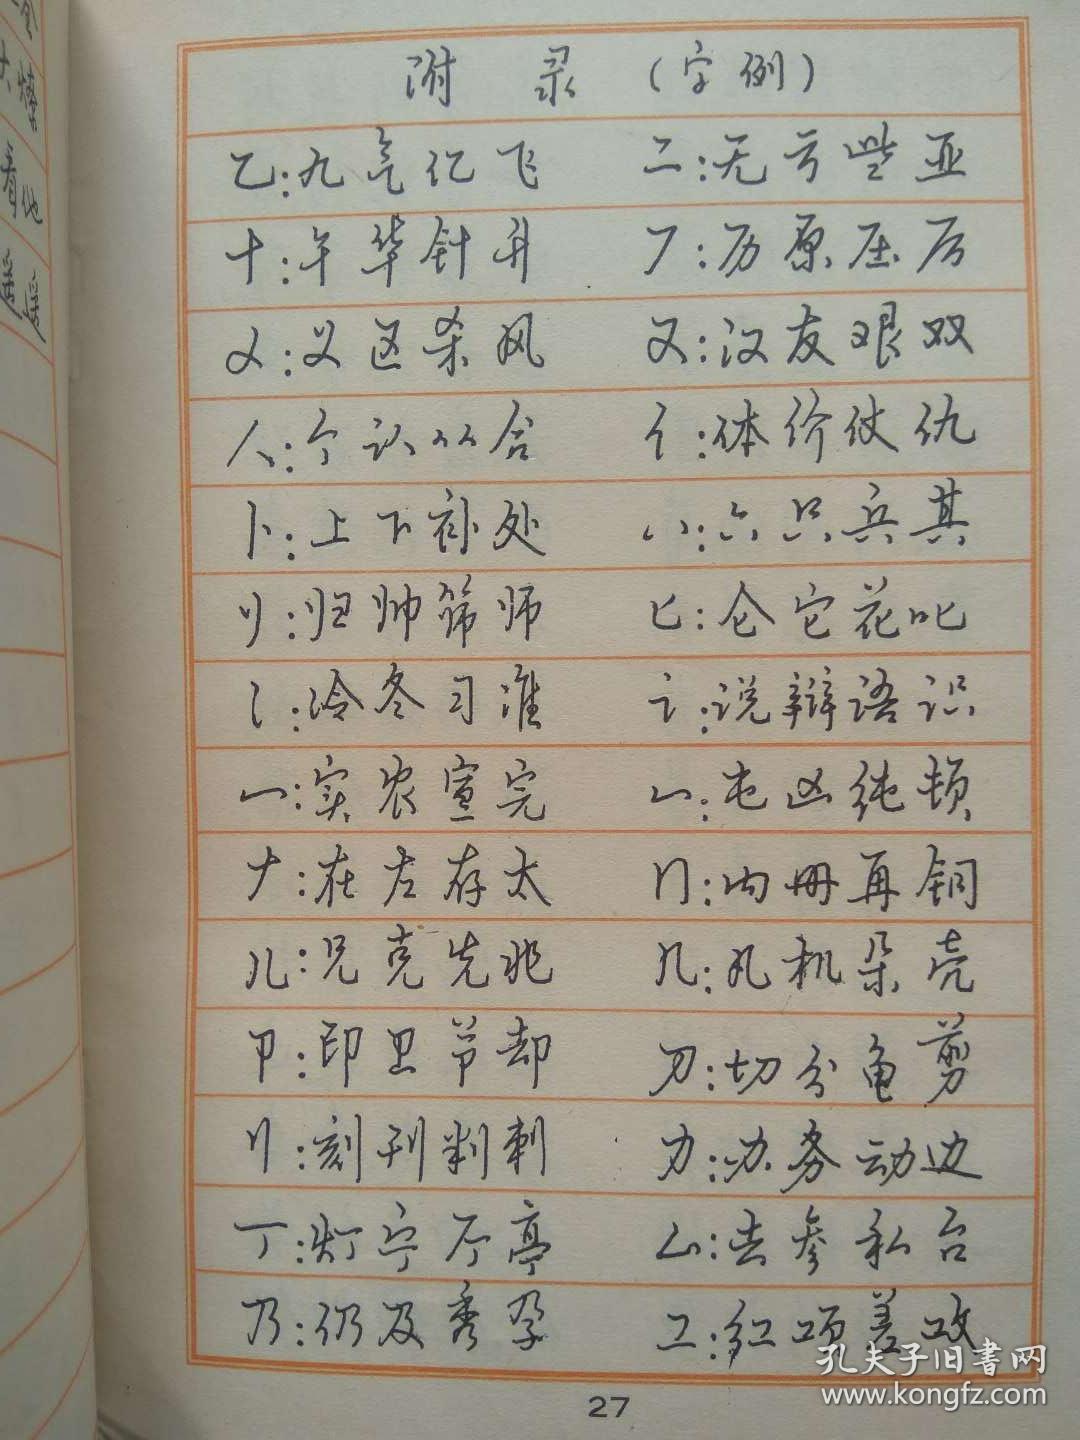 附 录 (字例)
乙:九气亿飞 二:无亏些亚
十:午华针升 厂:历原压后
乂:义区杀风 又:汉友艰双
人:个认以合 亻:体价仗仇
卜:上下补处 八:六只兵其
刂:归帅筛师 匕:仑它花叱
冫:冷冬习准 讠:说辩语识
冖:实农宣完 凵:屯凶纯顿
ナ:在左存太 冂:内册再铜
儿:兄克先兆 几:凡机朵壳
卩:印卫节却 刀:切分龟剪
刂:刻刊判刺 力:办务动边
丁:灯宁厅亭 厶:去参私台
乃:仍及秀孕 工:红项差攻
27
孔夫子旧書网
www.kongfz.com